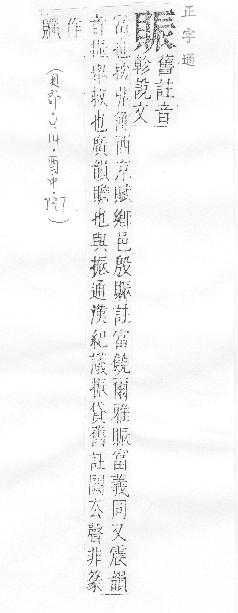 正字通
賑
舊註音
軫說文
富也按張衡西京賦鄉邑殷賑註富饒爾雅賑富義同又震韻
音振舉救也廣韻贍也與振通漢紀議振貸舊註闕去聲非篆
作
(貝部.014.酉中.727)